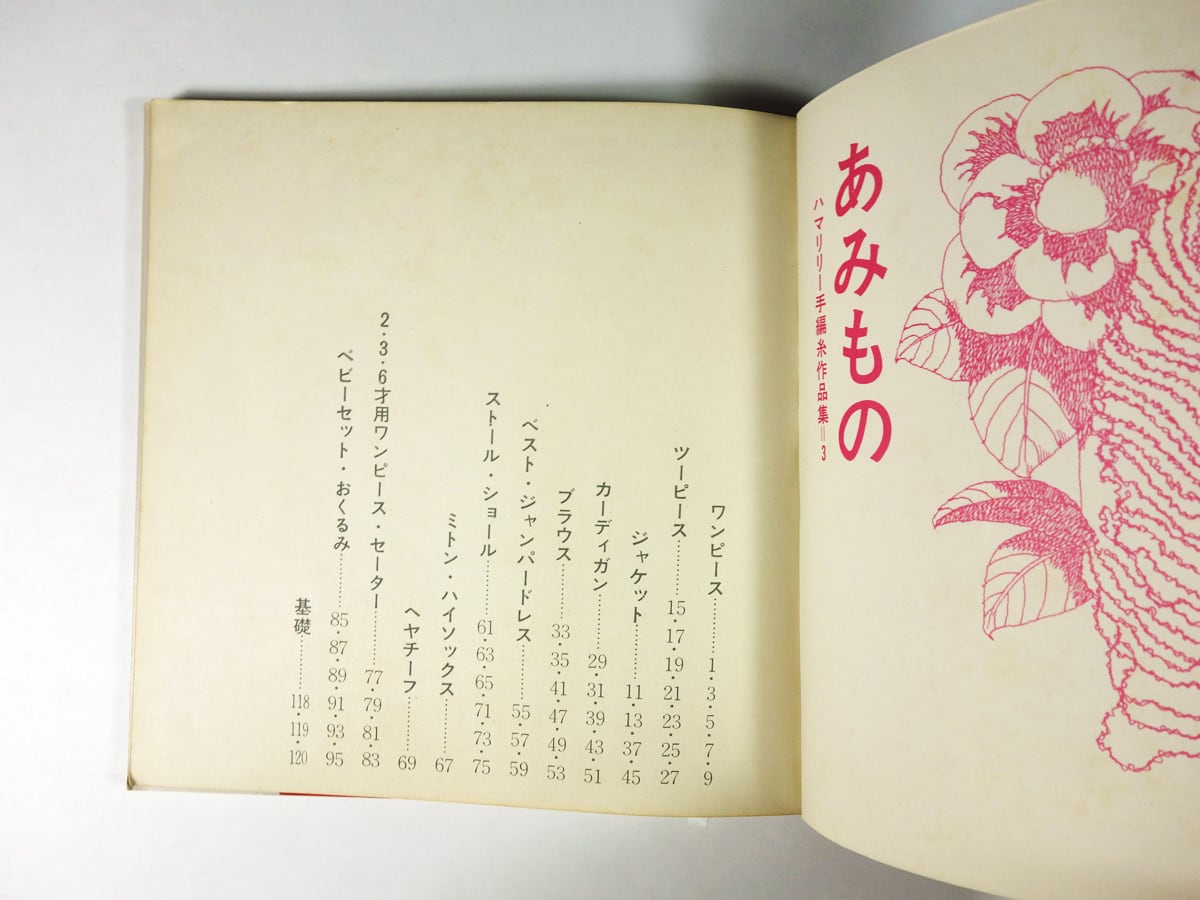 あみもの
ハマリリー手編糸作品集=3
ワンピース…………1・3・5・7・9
ツーピース…………15・17・19・21・23・25・27
ジャケット…………11・13・37・45
カーディガン…………29・31・39・43・51
ブラウス…………33・35・41・47・49・53
ベスト・ジャンパードレス…………55・57・59
ストール・ショール…………61・63・65・71・73・75
ミトン・ハイソックス…………67
ヘヤチーフ…………69
2・3・6才用ワンピース・セーター…………77・79・81・83
ベビーセット・おくるみ…………85・87・89・91・93・95
基礎…………118・119・120